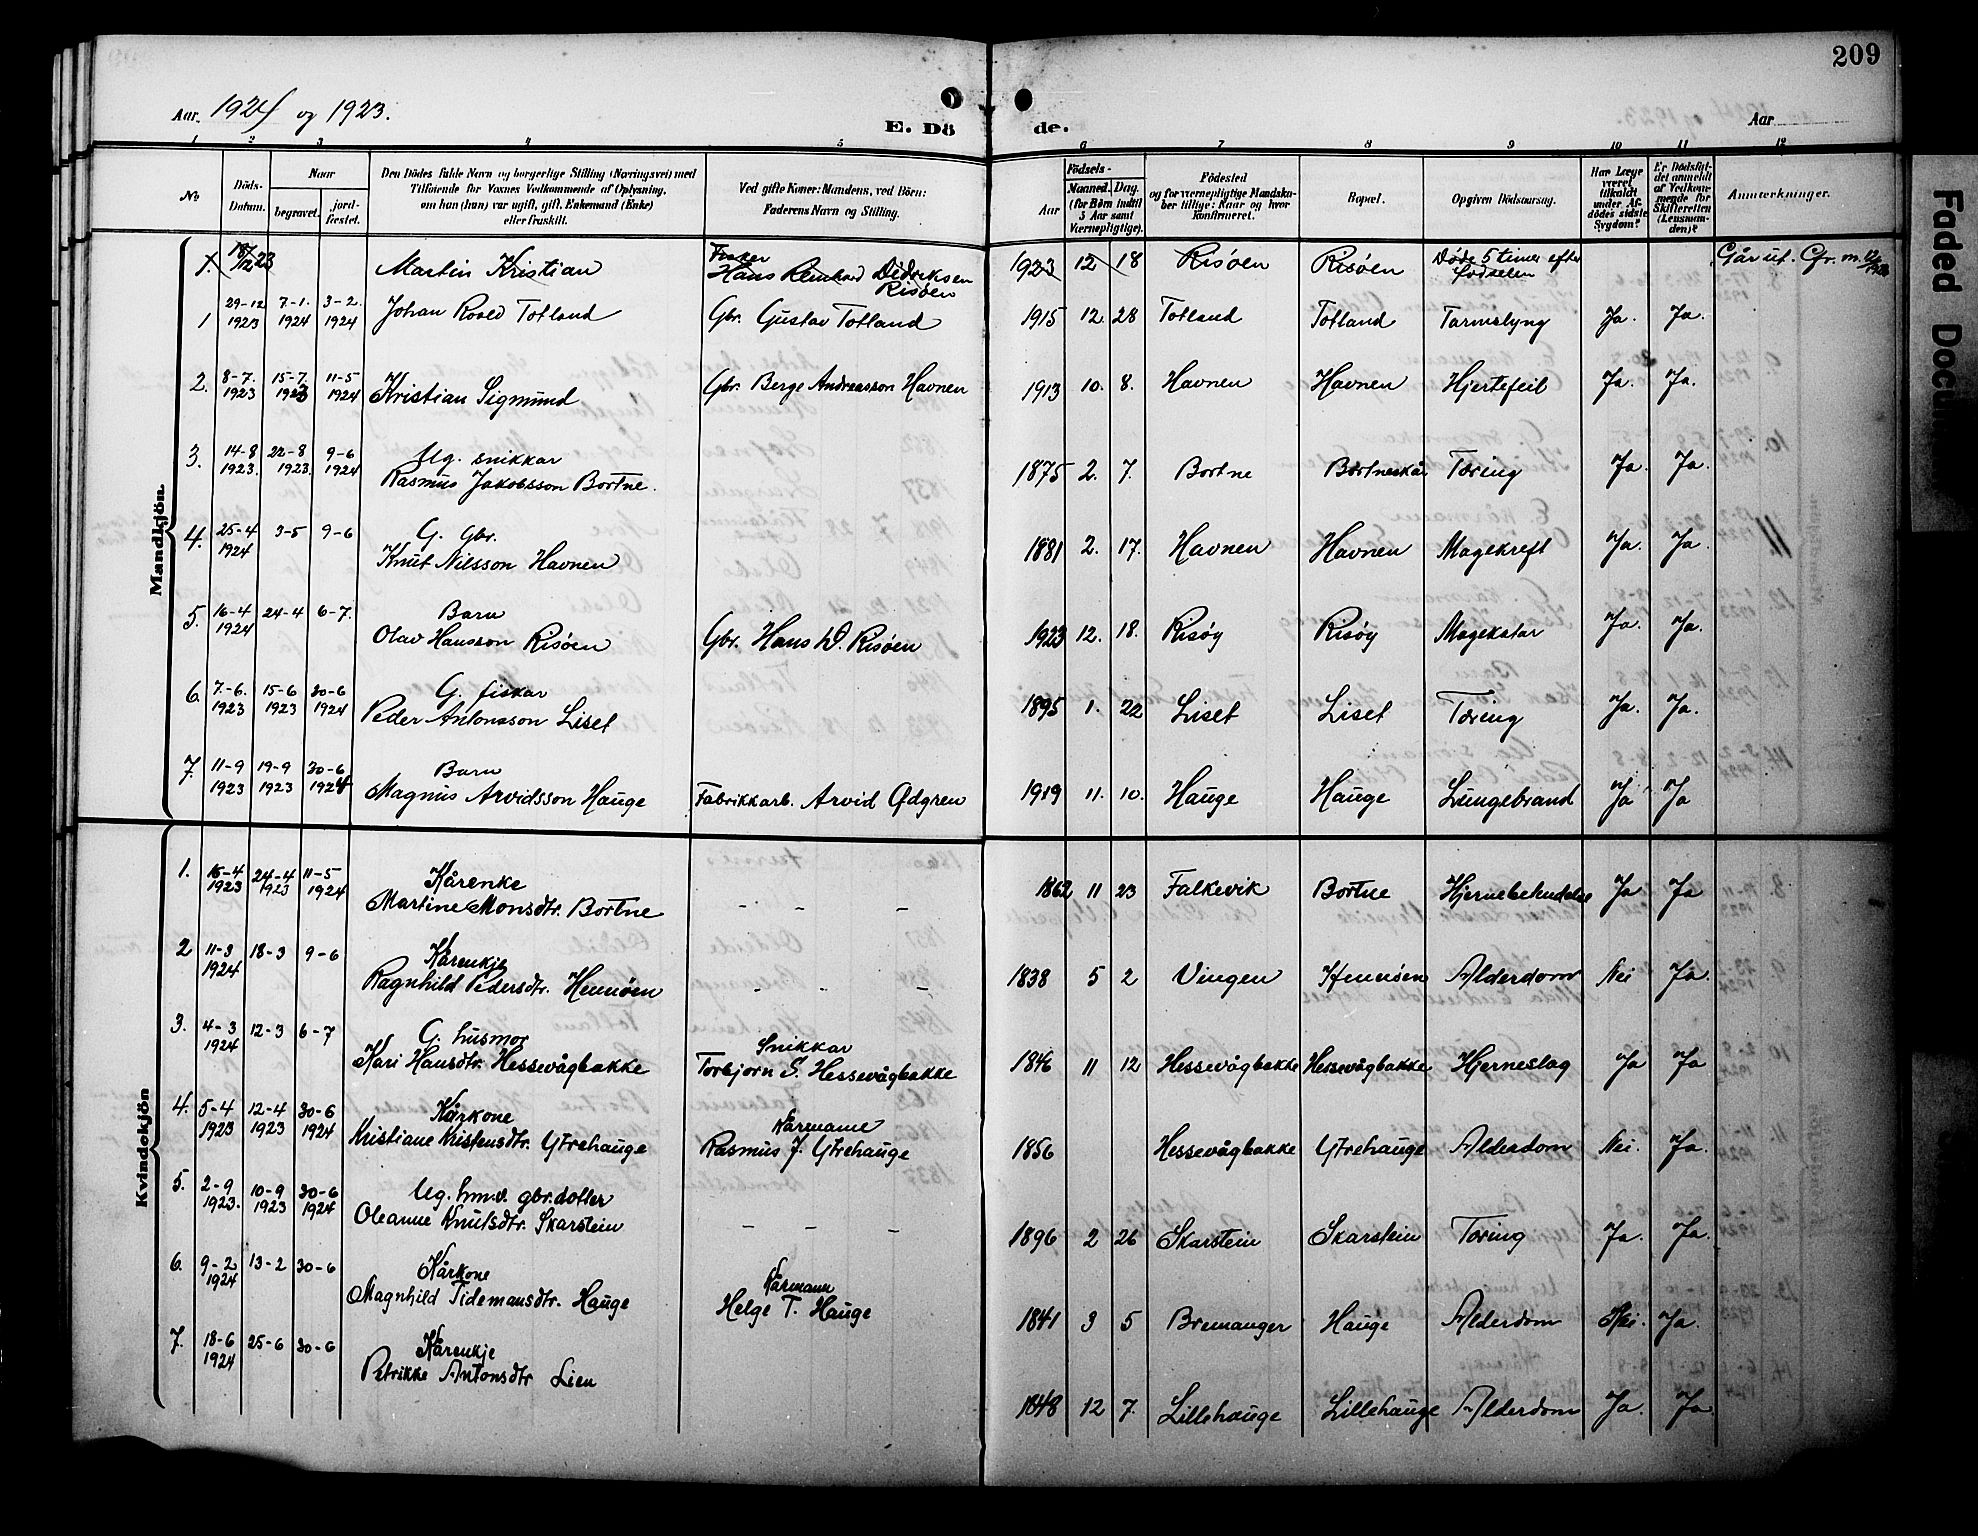 209
Aar 1924 og 1923.
E. Dö de.
Aar
1 2 3 4 5 6 7 8 9 10 11 12
No
Döds-Datum.
Naar
begravet.
jord-fæstet.
Den Dödes fulde Navn og borgerlige Stilling (Næringsvei) med
Tilföiende for Voxnes Vedkommende af Oplysning,
om han (hun) var ugift, gift, Enkemand (Enke)
eller fraskilt.
Ved gifte Koner: Mandens, ved Börn:
Faderens Navn og Stilling.
Födsels-
Aar
Maaned. Dag.
(for Börn indtil
3 Aar samt
Værnepligtige).
Födested
og for værnepligtige Mandska-
ber tillige: Naar og hvor
Konfirmeret.
Bopæl.
Opgiven Dödsaarsag.
Har Læge
været
tilkaldt
under Af-
dödes sidste
Sygdom?
Er Dödsfal-
det anmeldt
af Vedkom-
mende for
Skifteretten
(Lensman-
den)?
Anmærkninger.
Mandkjön.
1. 18/12 23 Martin Kristian Fisker Hans Reinhard Didriksen Risøen 1923 12 18 Risøen Risøen Døde 5 timer efter fødselen Går ut.
1 29-12 1923 7-1. 1924 3-2. 1924 Johan Roald Totland Gbr. Gustav Totland 1915 12. 28 Totland Totland Tarmslyng Ja. Ja.
2. 8-7. 1923 15-7. 1923 11-5 1924 Kristian Sigmund Gbr. Berge Andreasson Havnen 1913 10. 8. Havnen Havnen Hjertefeil Ja. Ja.
3. 14-8 1923. 22-8 1923. 9-6 1924 Ug. snikkar
Rasmus Jakobsson Bortne. 1875 2. 7. Bortne Bortneskår Tæring Ja. Ja.
4. 25-4 1924 3-5 9-6 G. Gbr.
Knut Nilsson Havnen 1881 2. 17. Havnen Havnen Magekreft Ja. Ja.
5. 16-4 1924 24-4 6-7. Barn
Olav Hansson Risøen Gbr. Hans D. Risøen 1923 12. 18. Risøy Risøy Magekatar Ja. Ja.
6. 7-6. 1923 15-6 1923 30-6 1924 G. fiskar
Peder Antonsson Liset 1895 1. 22 Liset Liset Tæring Ja. Ja.
7. 11-9 1923 19-9 1923 30-6 1924 Barn
Magnus Arvidsson Hauge Fabrikkarb. Arvid Ødgren 1919 11. 10. Hauge Hauge Lungebrand Ja Ja
Kvindekjön
1. 16-4 1923 24-4 1923 11-5 1924 Kårenke
Martine Monsdtr. Bortne - - - 1862 11 23 Falkevik Bortne Ja Ja
2 11-3 1924 18-3 9-6 Kårenkje
Ragnhild Pedersdtr. Hennøen - - - 1838 5 2 Vingen Hennøen Alderdom Nei Ja.
3. 4-3 1924 12-3 6-7 G. husmor
Kari Hansdtr. Hessevågbakke Snikkar
Torbjørn S. Hessevågbakke 1846 11 12 Hessevågbakke Hessevågbakke Hjerneslag Ja Ja
4. 5-4 1923 12-4 1923 30-6 1924 Kårkone
Kristiane Kristensdtr. Ytrehauge Kårmann
Rasmus J. Ytrehauge 1856 Hessevågbakke Ytrehauge Alderdom Nei. Ja.
5. 2-9 1923. 10-9 1923 30-6 1924 Ug. hm.v. gbr.dotter
Oleanne Knutsdtr. Skarstein - - - 1896 2 26 Skarstein Skarstein Tæring Ja. Ja.
6. 9-2 1924 13-2 30-6 Kårkone
Magnhild Tidemansdtr. Hauge Kårmann
Helge T. Hauge 1841 3 5 Bremanger Hauge Alderdom Nei. Ja.
7. 18-6 1924 25-6 30-6 Kårenkje
Petrikke Antonsdtr Lien 1848 12 7. Lillehauge Lillehauge Alderdom Ja. Ja.
Faded Docu